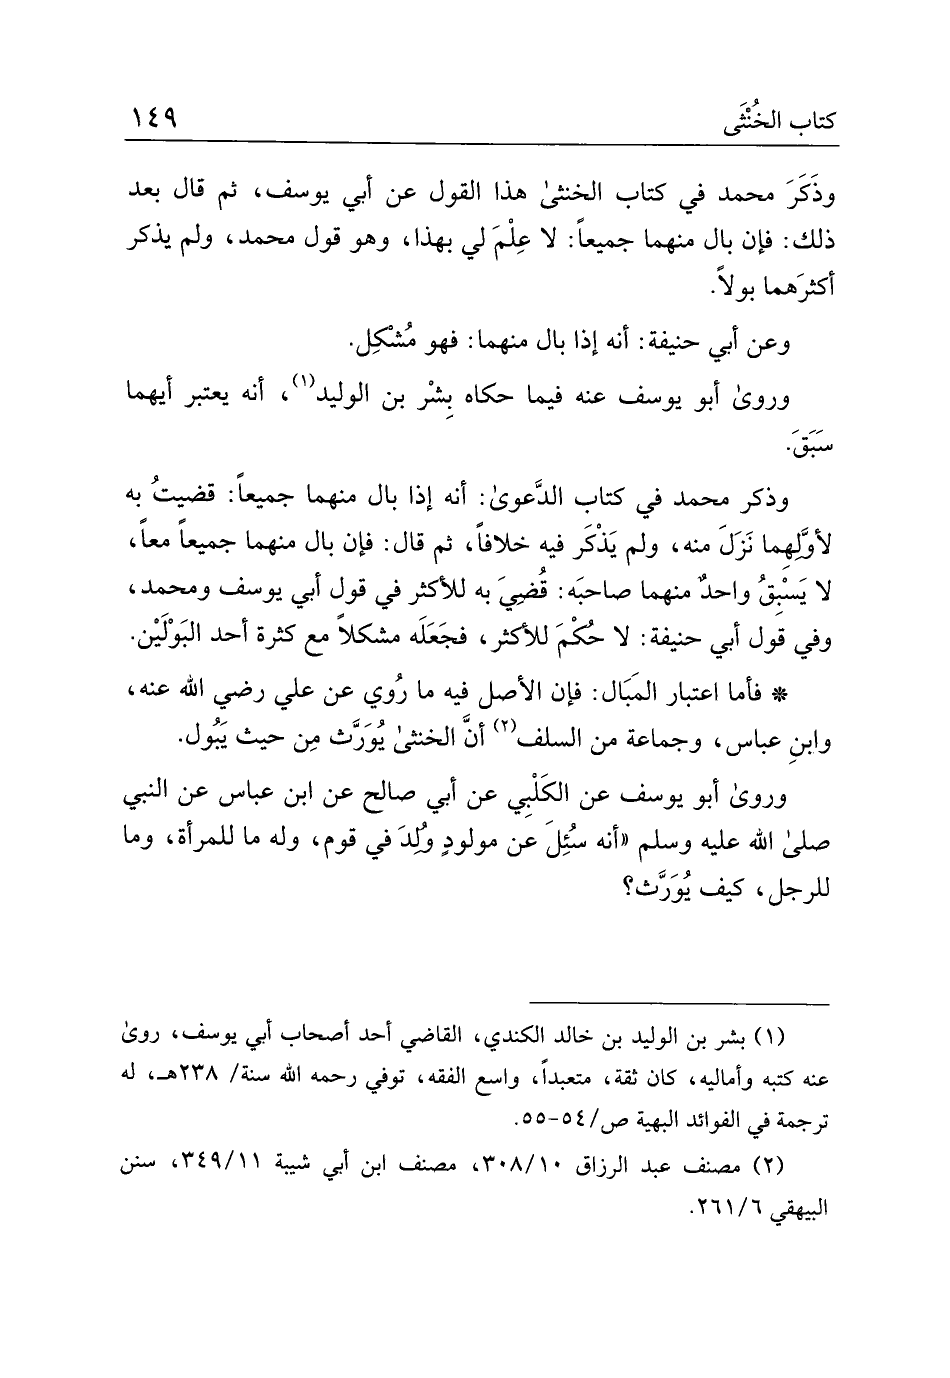 كتاب الخُنْثَى ١٤٩
وذَكَرَ محمد في كتاب الخنثىٰ هذا القول عن أبي يوسف، ثم قال بعد
ذلك: فإن بال منهما جميعاً: لا عِلْمَ لي بهذا، وهو قول محمد، ولم يذكر
أكثرَهما بولاً.
وعن أبي حنيفة: أنه إذا بال منهما: فهو مُشْكِل.
وروىٰ أبو يوسف عنه فيما حكاه بِشْر بن الوليد(١)، أنه يعتبر أيهما
سَبَقَ.
وذكر محمد في كتاب الدَّعوىٰ: أنه إذا بال منهما جميعاً: قضيتُ به
لأوَّلِهما نَزَلَ منه، ولم يَذْكَر فيه خلافاً، ثم قال: فإن بال منهما جميعاً معاً،
لا يَسْبِقُ واحدٌ منهما صاحبَه: قُضِيَ به للأكثر في قول أبي يوسف ومحمد،
وفي قول أبي حنيفة: لا حُكْمَ للأكثر، فجَعَلَه مشكلاً مع كثرة أحد البَوْلَيْن.
* فأما اعتبار المَبَال: فإن الأصل فيه ما رُوي عن علي رضي الله عنه،
وابنِ عباس، وجماعة من السلف(٢) أنَّ الخنثىٰ يُوَرَّث مِن حيث يَبُول.
وروىٰ أبو يوسف عن الكَلْبِي عن أبي صالح عن ابن عباس عن النبي
صلىٰ الله عليه وسلم «أنه سُئِلَ عن مولودٍ وُلِدَ في قوم، وله ما للمرأة، وما
للرجل، كيف يُوَرَّث؟
(١) بشر بن الوليد بن خالد الكندي، القاضي أحد أصحاب أبي يوسف، روىٰ
عنه كتبه وأماليه، كان ثقة، متعبداً، واسع الفقه، توفي رحمه الله سنة/ ٢٣٨هـ، له
ترجمة في الفوائد البهية ص/٥٤-٥٥.
(٢) مصنف عبد الرزاق ٣٠٨/١٠، مصنف ابن أبي شيبة ٣٤٩/١١، سنن
البيهقي ٢٦١/٦.